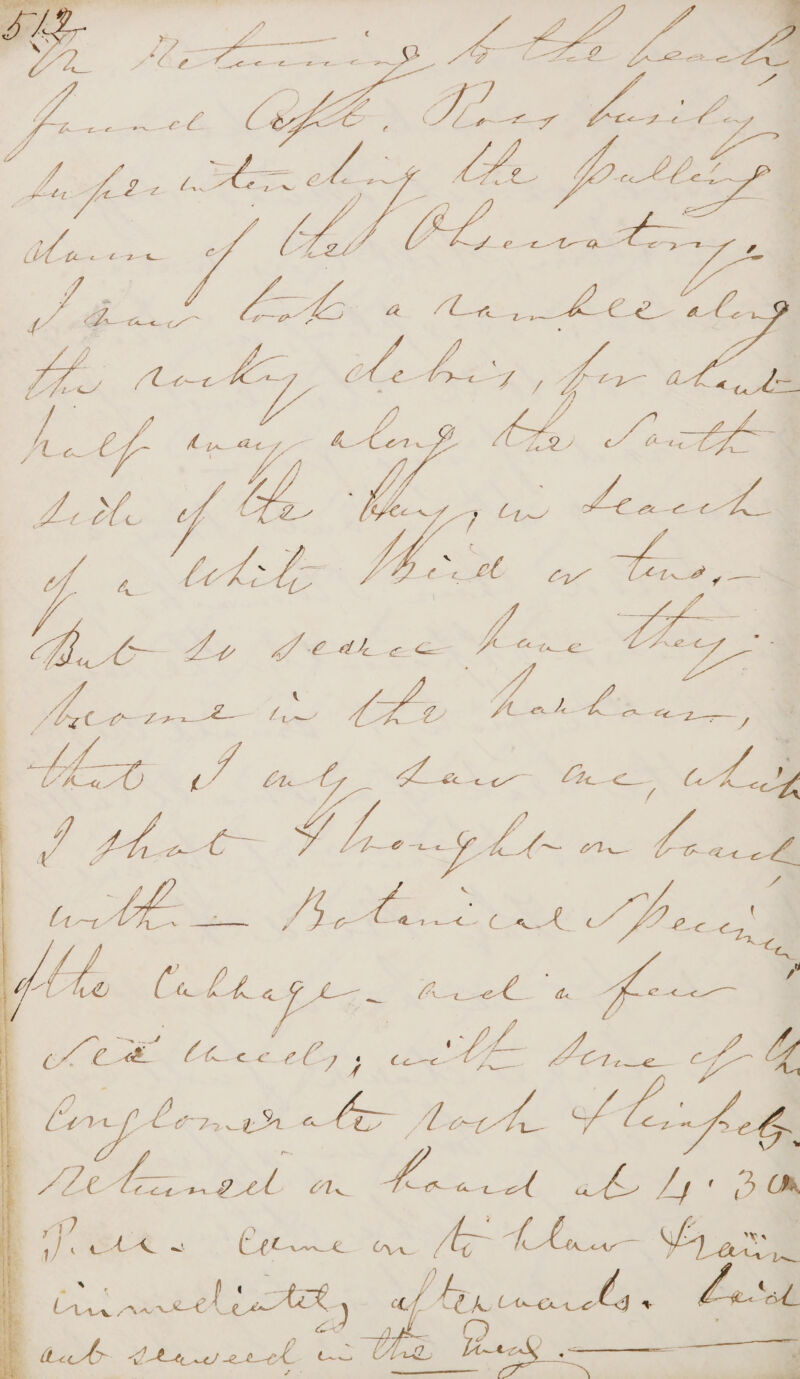 512
On Returning to the beach,
found Capt. Ross busily
superintending the pulling
down of the Observatory.
I now took a ramble along
the rocky debris, for about
half way along the South
side of the bay, in search
of a White Bird or two. —
But so scarce have they
become in the harbour,
that I only saw one, which
I shot & brought on board
with — Botanical Specimens
of the Cabbage - and a few
Sea weeds; with some of the
Conglomerate rock & limpets.
Returned on board at 4.30
P.M. - Came on to blow & rain
immediately afterwards. laid
out seaweed in the Eveng. —